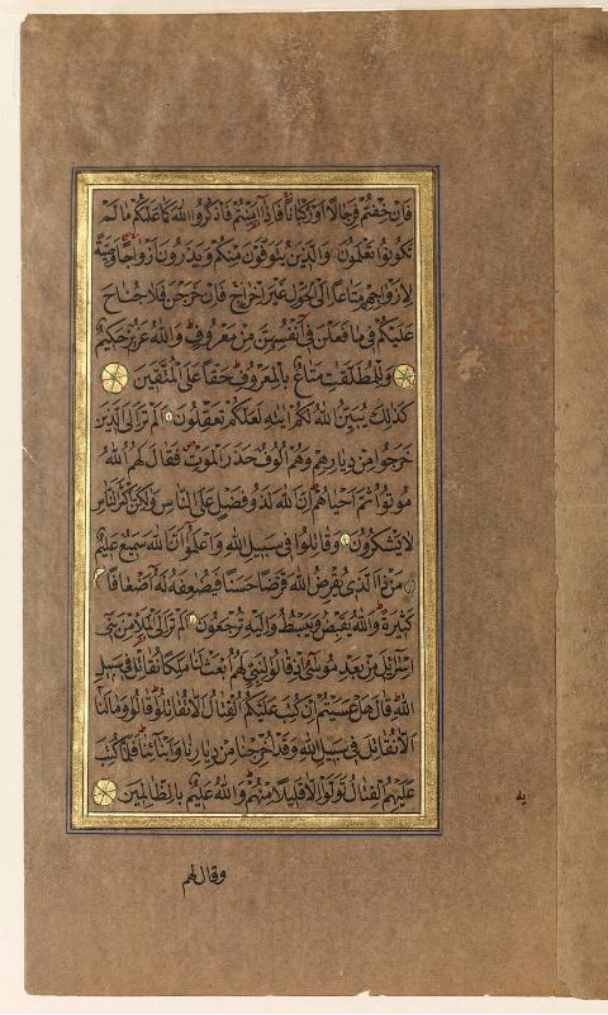 فَاِنْ خِفْتُمْ فَرِجَالًا اَوْ رُكْبَانًا فَاِذَا اَمِنْتُمْ فَاذْكُرُوا اللهَ كَمَا عَلَّمَكُمْ مَا لَمْ
تَكُونُوا تَعْلَمُونَ وَالَّذِينَ يُتَوَفَّوْنَ مِنْكُمْ وَيَذَرُونَ اَزْوَاجًا وَصِيَّةً
لِاَزْوَاجِهِمْ مَتَاعًا اِلَى الْحَوْلِ غَيْرَ اِخْرَاجٍ فَاِنْ خَرَجْنَ فَلَا جُنَاحَ
عَلَيْكُمْ فِي مَا فَعَلْنَ فِي اَنْفُسِهِنَّ مِنْ مَعْرُوفٍ وَاللهُ عَزِيزٌ حَكِيمٌ
وَلِلْمُطَلَّقَاتِ مَتَاعٌ بِالْمَعْرُوفِ حَقًّا عَلَى الْمُتَّقِينَ
كَذٰلِكَ يُبَيِّنُ اللهُ لَكُمْ اٰيٰتِهِ لَعَلَّكُمْ تَعْقِلُونَ اَلَمْ تَرَ اِلَى الَّذِينَ
خَرَجُوا مِنْ دِيَارِهِمْ وَهُمْ اُلُوفٌ حَذَرَ الْمَوْتِ فَقَالَ لَهُمُ اللهُ
مُوتُوا ثُمَّ اَحْيَاهُمْ اِنَّ اللهَ لَذُو فَضْلٍ عَلَى النَّاسِ وَلٰكِنَّ اَكْثَرَ النَّاسِ
لَا يَشْكُرُونَ وَقَاتِلُوا فِي سَبِيلِ اللهِ وَاعْلَمُوا اَنَّ اللهَ سَمِيعٌ عَلِيمٌ
مَنْ ذَا الَّذِي يُقْرِضُ اللهَ قَرْضًا حَسَنًا فَيُضٰعِفَهُ لَهُ اَضْعَافًا
كَثِيرَةً وَاللهُ يَقْبِضُ وَيَبْسُطُ وَاِلَيْهِ تُرْجَعُونَ اَلَمْ تَرَ اِلَى الْمَلَاِ مِنْ بَنِي
اِسْرَائِلَ مِنْ بَعْدِ مُوسٰى اِذْ قَالُوا لِنَبِيٍّ لَهُمُ ابْعَثْ لَنَا مَلِكًا نُقَاتِلْ فِي سَبِيلِ
اللهِ قَالَ هَلْ عَسَيْتُمْ اِنْ كُتِبَ عَلَيْكُمُ الْقِتَالُ اَلَّا تُقَاتِلُوا قَالُوا وَمَا لَنَا
اَلَّا نُقَاتِلَ فِي سَبِيلِ اللهِ وَقَدْ اُخْرِجْنَا مِنْ دِيَارِنَا وَاَبْنَائِنَا فَلَمَّا كُتِبَ
عَلَيْهِمُ الْقِتَالُ تَوَلَّوْا اِلَّا قَلِيلًا مِنْهُمْ وَاللهُ عَلِيمٌ بِالظَّالِمِينَ
وقال لهم